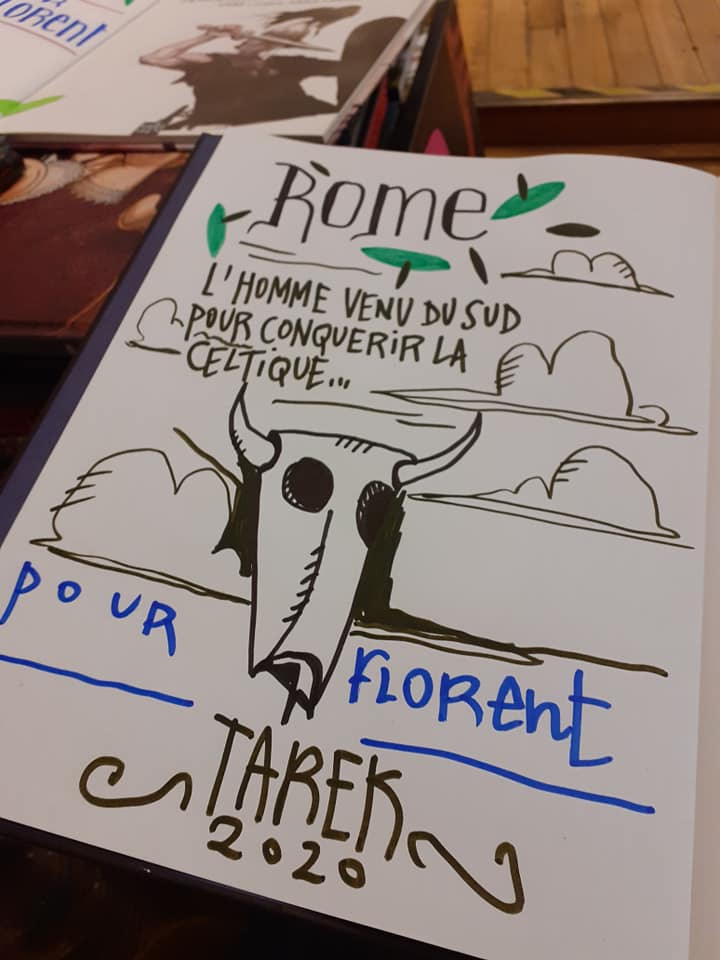 FLORENT
Rome
L'HOMME VENU DU SUD
POUR CONQUERIR LA
CELTIQUE...
POUR
FLORENT
TAREK
2020